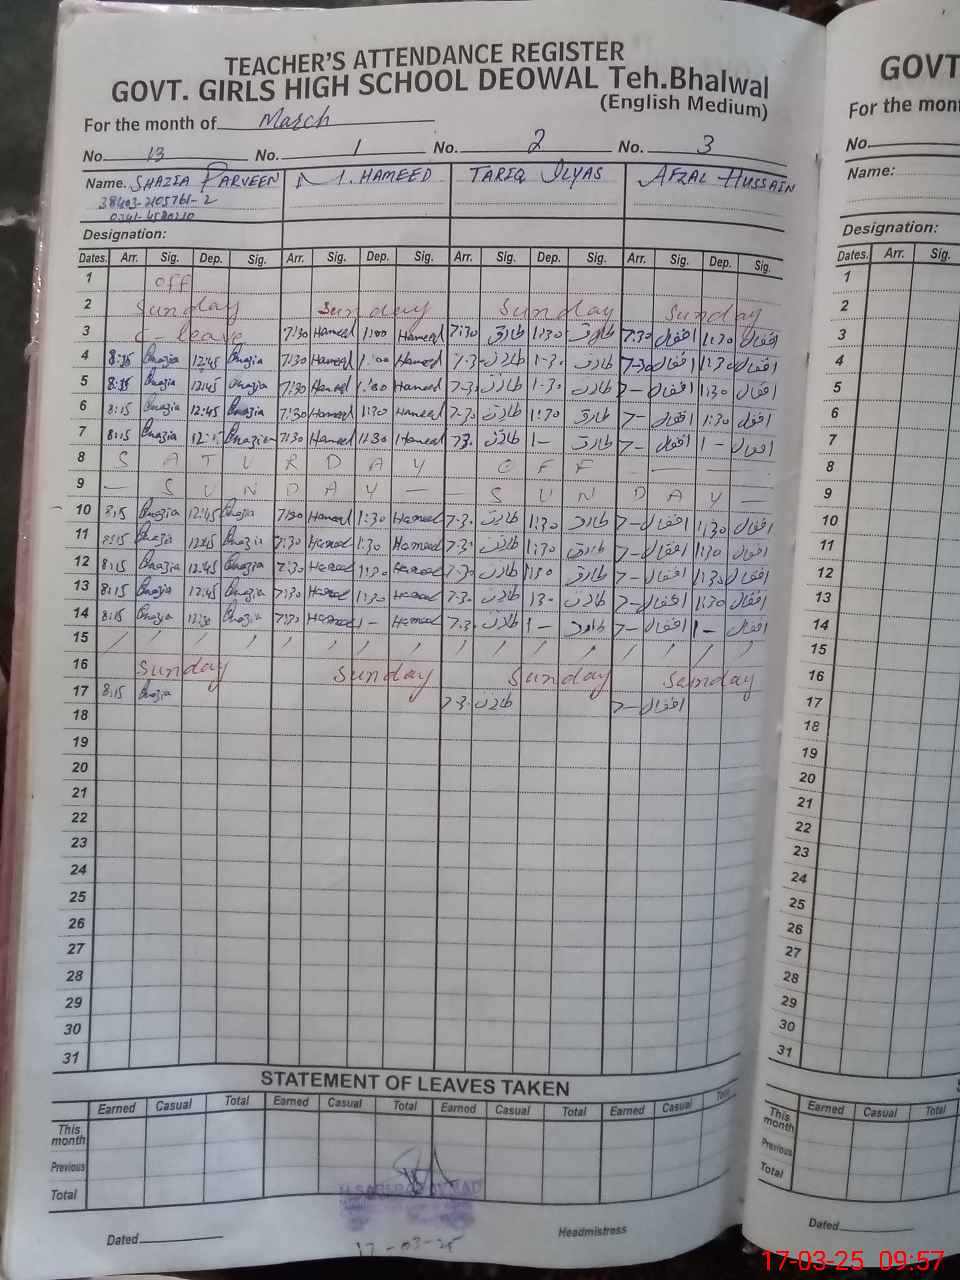 TEACHER'S ATTENDANCE REGISTER
GOVT. GIRLS HIGH SCHOOL DEOWAL Teh.Bhalwal
(English Medium)
For the month of March
No. 13 No. 1 No. 2 No. 3
Name. SHAZIA PARVEEN M. HAMEED TARIQ ILYAS AFZAL HUSSAIN
38403-2105761-2
Designation:
Dates. Arr. Sig. Dep. Sig. Arr. Sig. Dep. Sig. Arr. Sig. Dep. Sig. Arr. Sig. Dep. Sig.
1 off
2 Sunday Sunday Sunday Sunday
3 leave 7:30 Hameed 1:00 Hameed 7:30 طارق 1:30 طارق 7:30 افضال 1:30 افضال
4 8:15 Shazia 12:45 Shazia 7:30 Hameed 1:00 Hameed 7-3. طارق 1-3. طارق 7-30 افضال 1:30 افضال
5 8:15 Shazia 12:45 Shazia 7:30 Hameed 1:00 Hameed 7-3. طارق 1-3. طارق 7- افضال 1:30 افضال
6 8:15 Shazia 12:45 Shazia 7:30 Hameed 1:30 Hameed 7-3. طارق 1:30 طارق 7- افضال 1:30 افضال
7 8:15 Shazia 12:15 Shazia 7:30 Hameed 11:30 Hameed 73. طارق 1- طارق 7- افضال 1- افضال
8 S A T U R D A Y O F F — — —
9 — S U N D A Y — — S U N D A Y —
10 8:15 Shazia 12:45 Shazia 7:30 Hameed 1:30 Hameed 7-3. طارق 1:30 طارق 7- افضال 1:30 افضال
11 8:15 Shazia 12:45 Shazia 7:30 Hameed 1:30 Hameed 7-3. طارق 1:30 طارق 7- افضال 1:30 افضال
12 8:15 Shazia 12:45 Shazia 7:30 Hameed 1:30 Hameed 7-30 طارق 1:30 طارق 7- افضال 1:30 افضال
13 8:15 Shazia 12:45 Shazia 7:30 Hameed 1:30 Hameed 7-3. طارق 13. طارق 7- افضال 1:30 افضال
14 8:15 Shazia 12:30 Shazia 7:30 Hameed 1- Hameed 7-3. طارق 1- طارق 7- افضال 1- افضال
15
16 Sunday Sunday Sunday Sunday
17 8:15 Shazia 7-3. طارق 7- افضال
18
19
20
21
22
23
24
25
26
27
28
29
30
31
STATEMENT OF LEAVES TAKEN
Earned Casual Total Earned Casual Total Earned Casual Total Earned Casual Total
This month
Previous
Total
17-03-25
Dated Headmistress
GOVT
For the mon
No.
Name:
Designation:
Dates. Arr. Sig.
1
2
3
4
5
6
7
8
9
10
11
12
13
14
15
16
17
18
19
20
21
22
23
24
25
26
27
28
29
30
31
Earned Casual Total
This month
Previous
Total
Dated
17-03-25 09:57